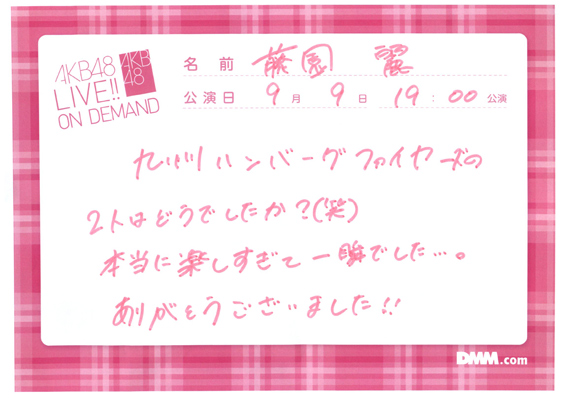 AKB48
LIVE!!
ON DEMAND
AKB
48
名 前 藤園 麗
公演日 9月 9日 19:00公演
九州ハンバーグファイヤーズの
2人はどうでしたか?(笑)
本当に楽しすぎて一瞬でした…。
ありがとうございました!!
DMM.com